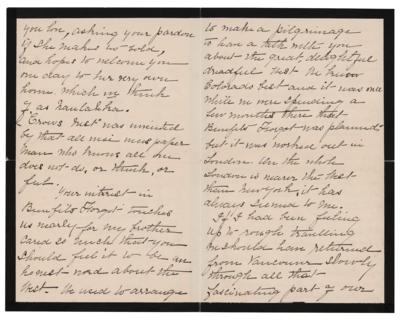 you love, asking your pardon
if she makes so bold,
and hopes to welcome you
one day to her very own
home which we think
of as Naulahka.
"Crows Nest" was invented
by that all wise news paper
man who knows all one
does not do, or think, or
feel.
Your interest in
Benefits Forgot touches
us nearly for my brother
cared so much that you
should feel it to be an
honest word about the
West. He used to arrange
to make a pilgrimage
to have a talk with you
about the great, delightful
dreadful West. He knew
Colorado best and it was
while we were spending a
few months there that
Benefits Forgot was planned
but it was worked out in
London. On the whole
London is nearer the West
than New York, it has
always seemed to me.
If I had been feeling
up to rough travelling
we should have returned
from Vancouver slowly
through all that
fascinating part of our